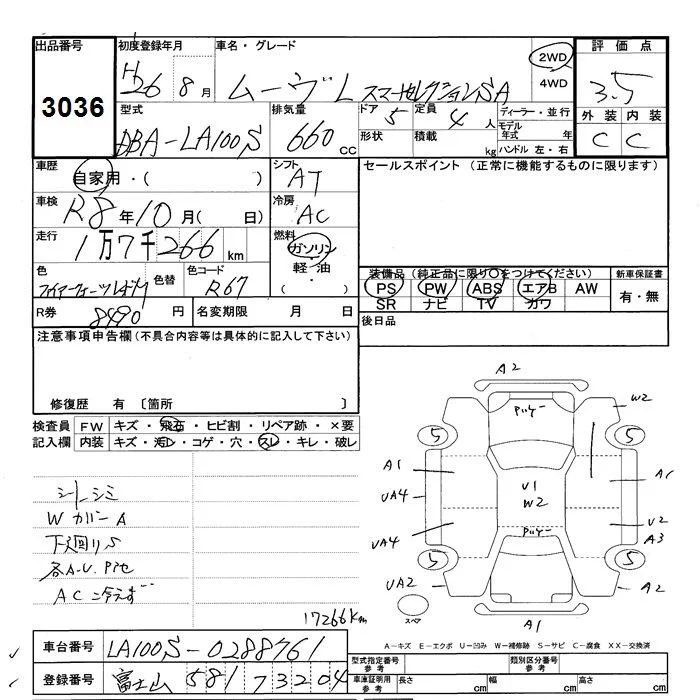 出品番号 初度登録年月 車名・グレード 評価点
3036
H26 8月 ムーヴ L スマートセレクションSA 2WD 4WD 3.5
型式 排気量 ドア 定員 ディーラー・並行 外装 内装
DBA-LA100S 660cc 5 4人 形状 積載 kg モデル年式 年 ハンドル 左・右 C C
車歴 自家用・( ) シフト AT セールスポイント (正常に機能するものに限ります)
車検 R8年10月( 日) 冷房 AC
走行 1万7千266km 燃料 ガソリン・軽油・( )
色 色替 色コード R67
装備品 (純正品に限り○をつけてください) 新車保証書
PS PW ABS エアB AW 有・無
SR ナビ TV カワ
R券 8490円 名変期限 月 日 後日品
注意事項申告欄(不具合内容等は具体的に記入して下さい)
修復歴 有 〔箇所 〕
検査員記入欄 FW キズ・飛石・ヒビ割・リペア跡・×要
内装 キズ・汚レ・コゲ・穴・スレ・キレ・破レ
シートシミ
W カバー A
下廻りS
各A.U.Pアセ
AC冷えず
17266km
A2
W2
5 パッケー 5
A1 U1 A1
UA4 W2 U2
UA4 パッケー A3
5 5
UA2 A2
スペア A1
A-キズ E-エクボ U-凹み W-補修跡 S-サビ C-腐食 XX-交換済
車台番号 LA100S-0288761
登録番号 富士山 581 7 3204
型式指定番号 参考 類別区分番号 参考
車庫証明用 参考 長さ cm 幅 cm 高さ cm